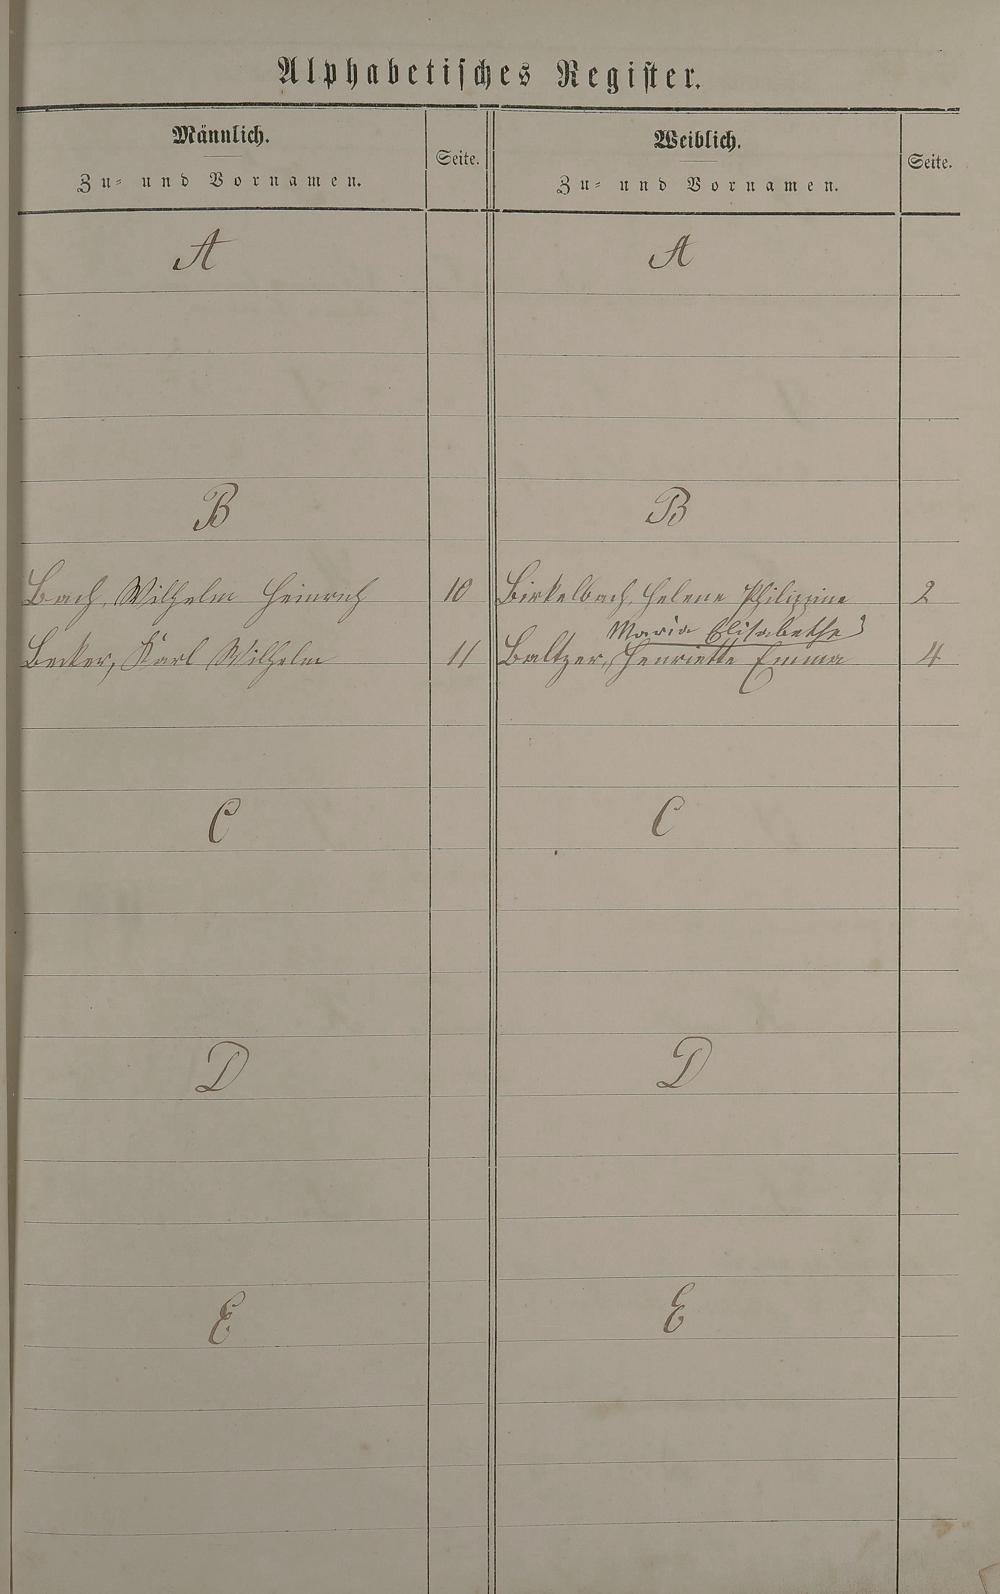 Alphabetisches Register.
Männlich.
Zu- und Vornamen.
Seite.
Weiblich.
Zu- und Vornamen.
Seite.
A
A
B
B
Bach, Wilhelm Heinrich 10
Birkelbach, Helene Philippine 2
Maria Elisabethe
Becker, Karl Wilhelm 11
Baltzer, Henriette Emma 4
C
C
D
D
E
E